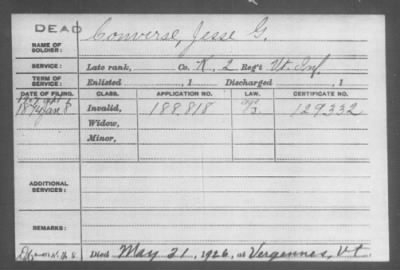 DEAD
NAME OF SOLDIER: Converse, Jesse G.
SERVICE: Late rank, Co. K, 2 Reg't Vt. Inf.
TERM OF SERVICE: Enlisted , 1 Discharged , 1
DATE OF FILING. CLASS. APPLICATION NO. LAW. CERTIFICATE NO.
Jan 8 Invalid, 188.818 129.332
Widow,
Minor,
ADDITIONAL SERVICES:
REMARKS:
Died May 21, 1926, at Vergennes, Vt